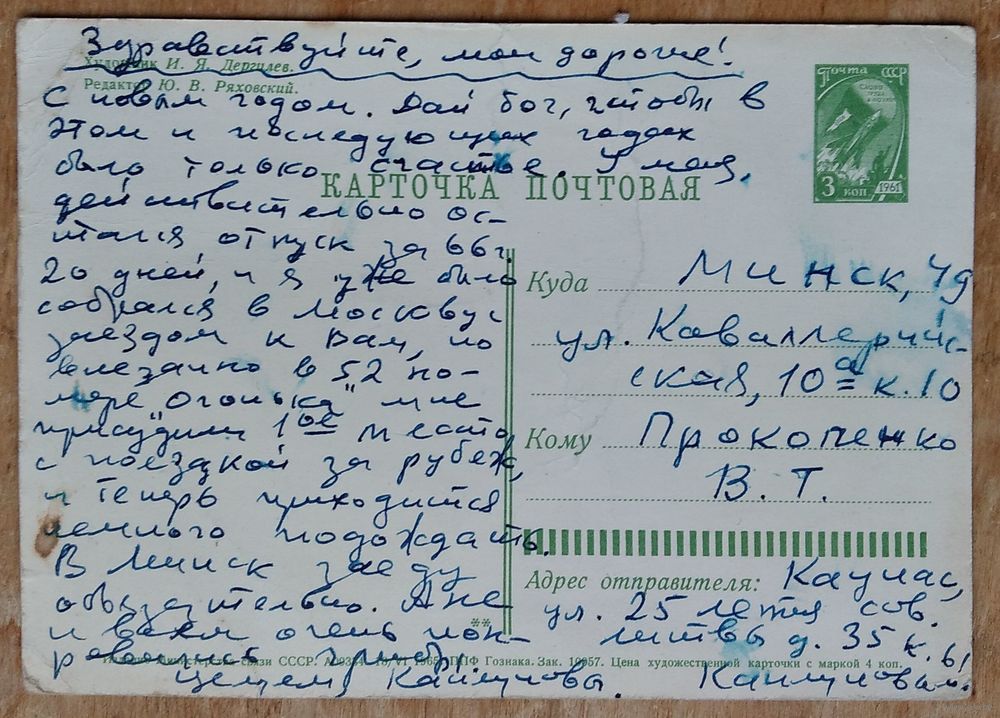 Здравствуйте, мои дорогие!
Художник И. Я. Дергилев.
Редактор Ю. В. Ряховский.
С новым годом. Дай бог, чтобы в
этом и последующих годах
было только счастье. У меня,
действительно ос-
тался отпуск за 66г.
20 дней, и я уже было
собрался в Москву с
заездом к Вам, но
внезапно в 52 но-
мере "Огонька" мне
присудили 1ое место
с поездкой за рубеж,
и теперь приходится
немного подождать.
В Минск заеду
обязательно. Ане
и всем очень пон-
равились грибы.
Целуем, Каплуновы.
КАРТОЧКА ПОЧТОВАЯ
ПОЧТА СССР
3 КОП
1961
Куда Минск, 49
ул. Каваллерий-
ская, 10а к. 10
Кому Прокопенко
В. Т.
Адрес отправителя: Каунас,
ул. 25 летия сов.
литвы д. 35 к. 61
**
Министерства связи СССР. 1966. ППФ Гознака. Зак. 10957. Цена художественной карточки с маркой 4 коп.